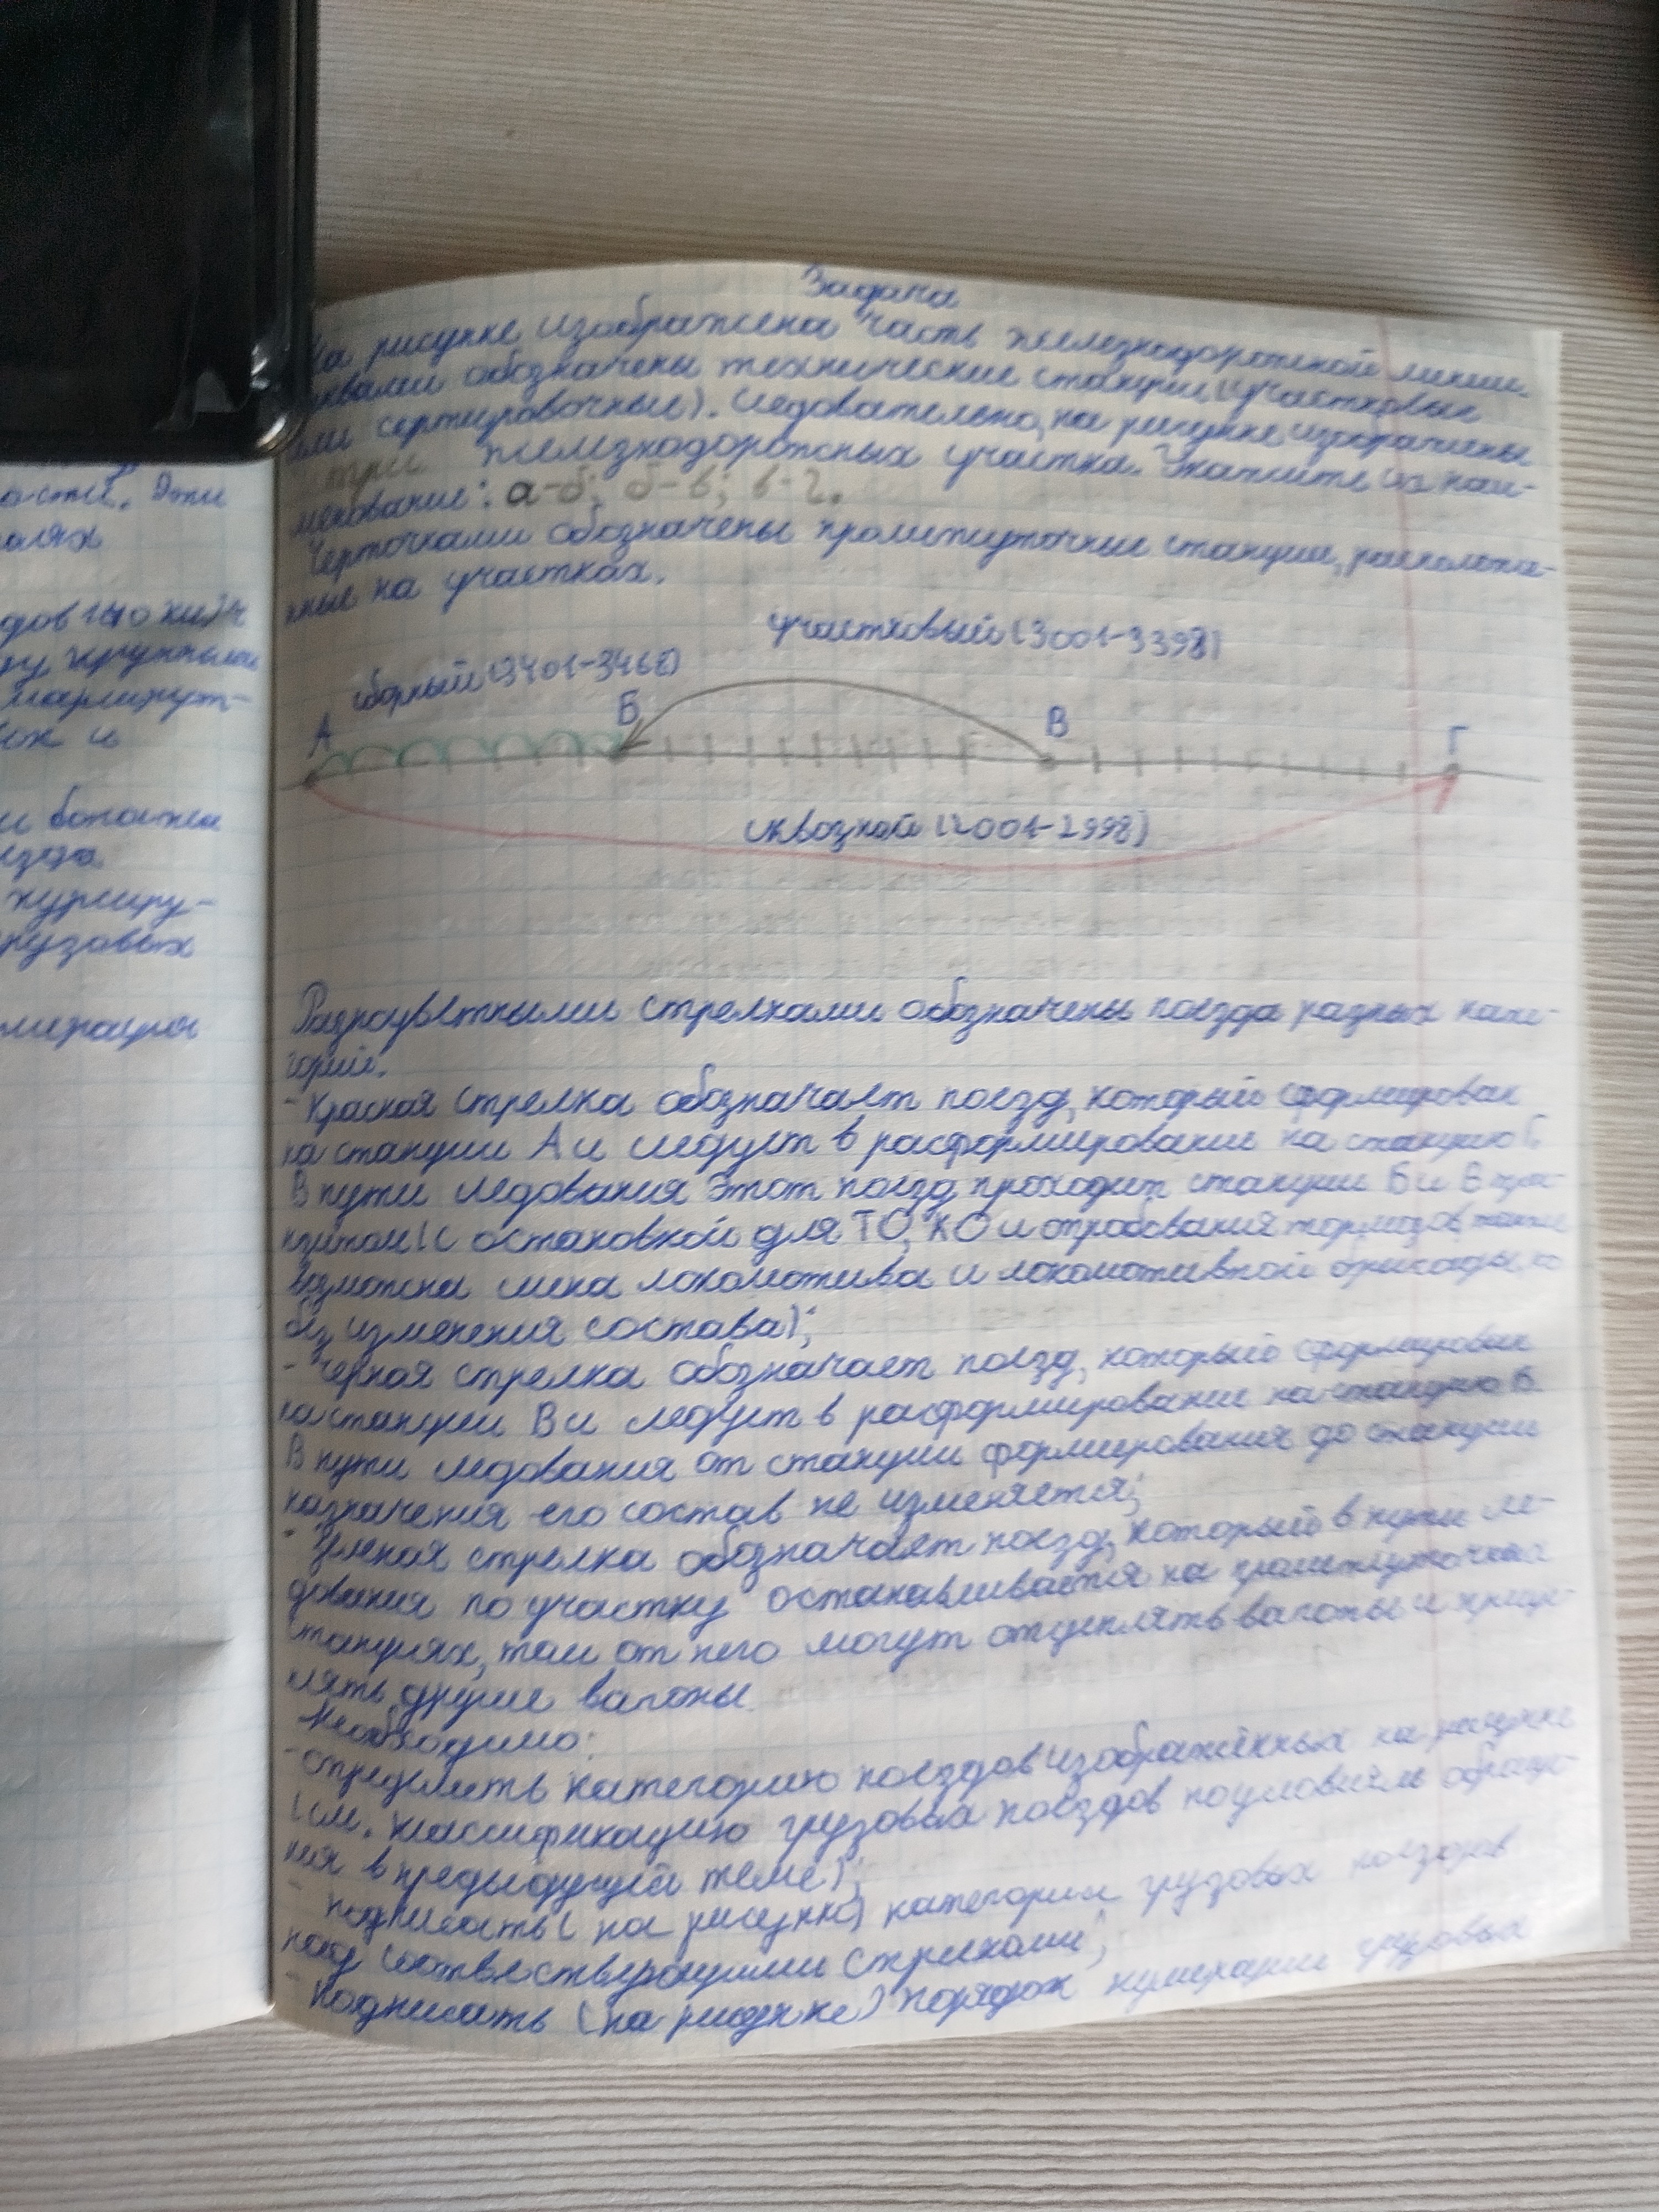 асти. Эти
дов 140 км/ч
ду крупными
маршрут-
курсиру-
грузовых
нумерация
Задача
На рисунке изображена часть железнодорожной линии.
Буквами обозначены технические станции (участковые
или сортировочные). Следовательно, на рисунке изображены
три железнодорожных участка. Укажите их наи-
менование: а-б; б-в; в-г.
Черточками обозначены промежуточные станции, расположе-
нные на участках.
участковый (3001-3398)
сборный (3401-3468)
А Б В Г
сквозной (2001-2998)
Разноцветными стрелками обозначены поезда разных кате-
горий:
- Красная стрелка обозначает поезд, который сформирован
на станции А и следует в расформирование на станцию Г.
В пути следования этот поезд проходит станции Б и В тран-
зитом (с остановкой для ТО, КО и опробования тормозов, также
возможна смена локомотива и локомотивной бригады, но
без изменения состава);
- Черная стрелка обозначает поезд, который сформирован
на станции В и следует в расформирование на станцию Б.
В пути следования от станции формирования до станции
назначения его состав не изменяется;
- Зеленая стрелка обозначает поезд, который в пути сле-
дования по участку останавливается на промежуточных
станциях, там от него могут отцеплять вагоны и прицеп-
лять другие вагоны.
Необходимо:
- определить категорию поездов изображённых на рисунке
(см. классификацию грузовых поездов по условиям обраще-
ния в предыдущей теме);
- подписать (на рисунке) категории грузовых поездов
над соответствующими стрелками;
- подписать (на рисунке) порядок нумерации грузовых